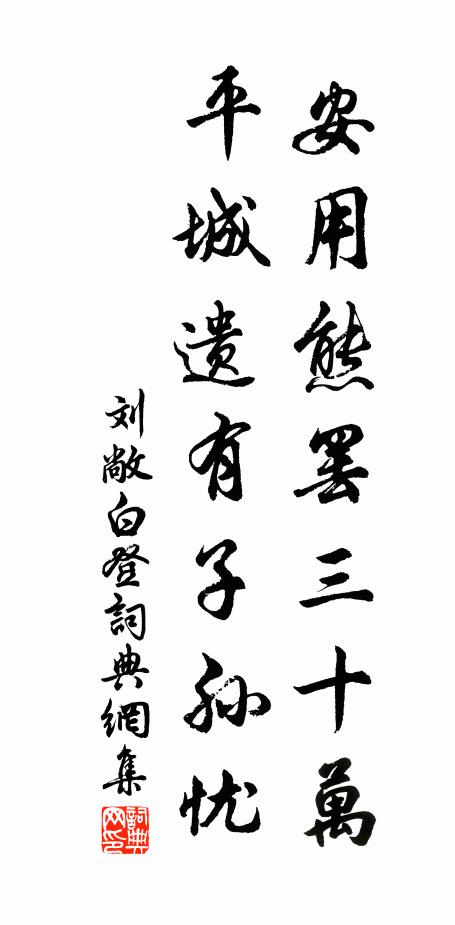 安用熊罴三十萬
平城遗有子孙忧
刘敞白登詞典網集
詞典
网印